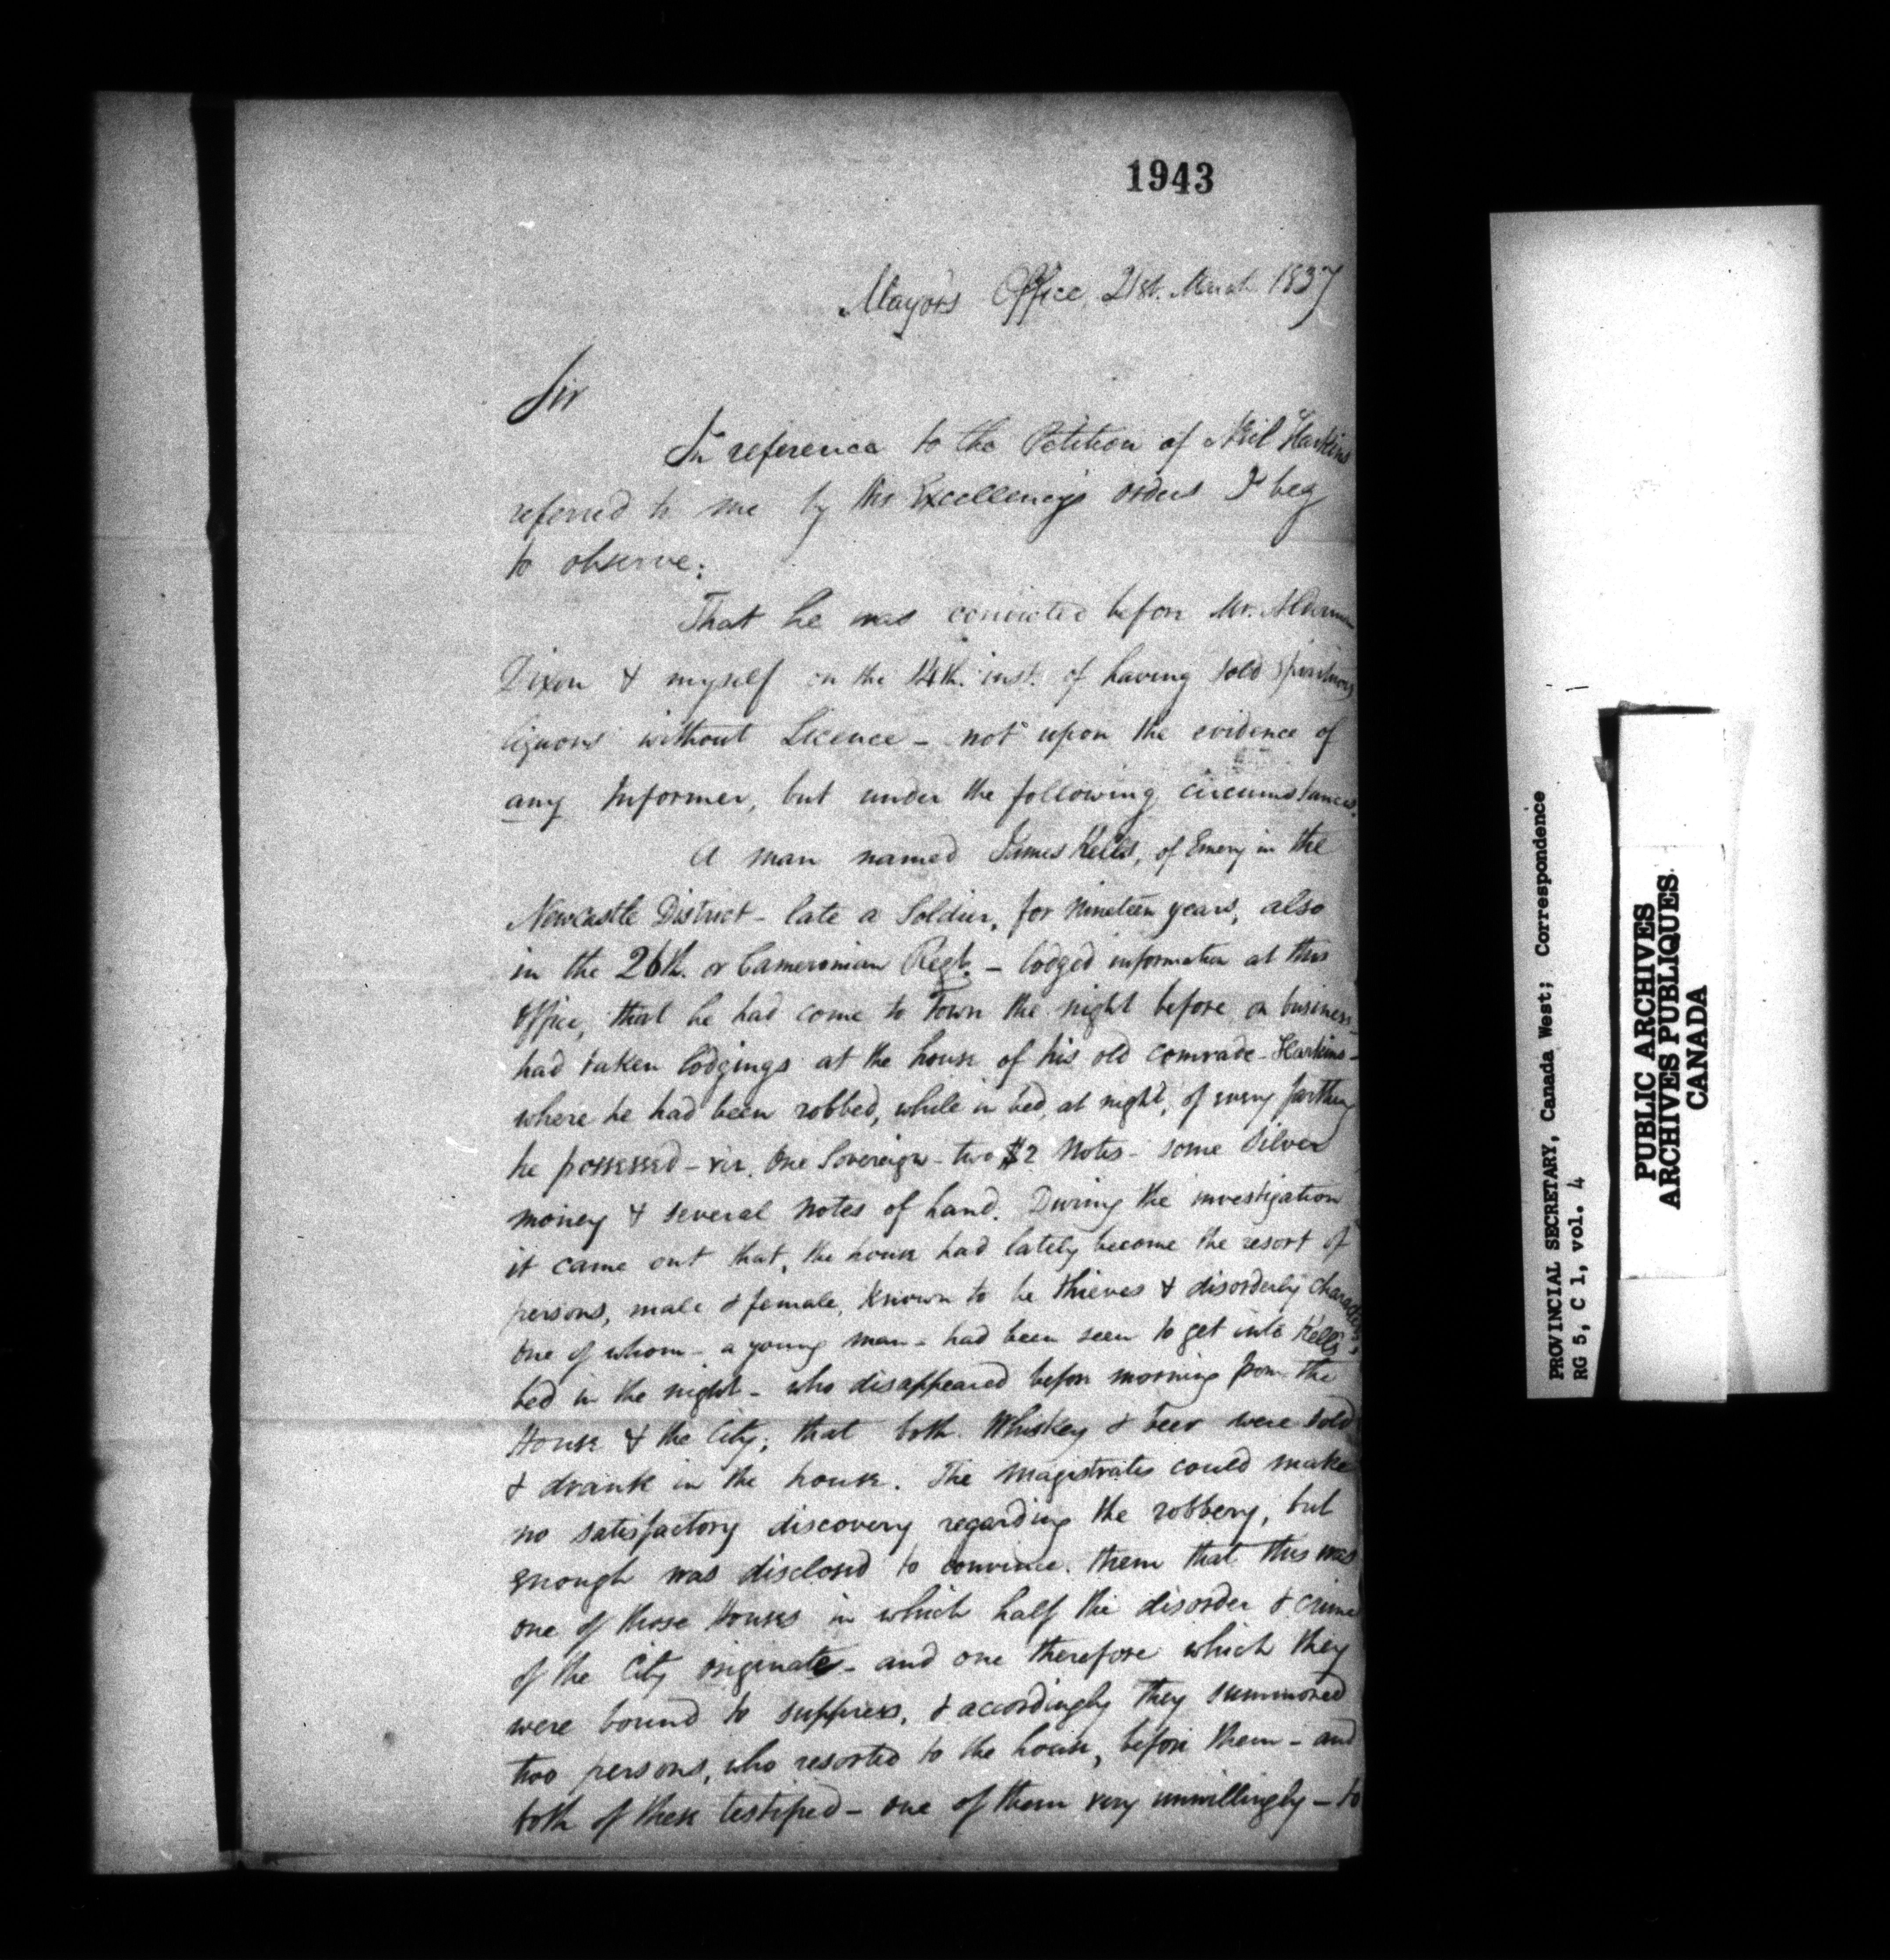 1943
Mayor's Office, 21st. March 1837
Sir
In reference to the Petition of Neil Harkins
referred to me by His Excellency's orders I beg
to observe:
That he was convicted before Mr. Alderman
Dixon & myself on the 14th. inst. of having sold spirituous
liquors without Licence - not upon the evidence of
any Informer, but under the following circumstances.
A man named James Kells, of Emery in the
Newcastle District - late a Soldier, for nineteen years, also
in the 26th. or Cameronian Regt. - lodged information at this
Office, that he had come to Town the night before on business -
had taken lodgings at the house of his old comrade - Harkins -
where he had been robbed, while in bed, at night, of every farthing
he possessed - viz. One Sovereign - two $2 Notes - some Silver
money & several notes of hand. During the investigation
it came out that, the house had lately become the resort of
persons, male & female, known to be thieves & disorderly characters,
one of whom - a young man - had been seen to get into Kells's
bed in the night - who disappeared before morning from the
House & the City; that both Whiskey & beer were sold
& drank in the house. The Magistrates could make
no satisfactory discovery regarding the robbery, but
enough was disclosed to convince them that this was
one of those Houses in which half the disorder & crime
of the City originate - and one therefore which they
were bound to suppress, & accordingly they summoned
two persons, who resorted to the house, before them - and
both of them testified - one of them very unwillingly - to
PROVINCIAL SECRETARY, Canada West; Correspondence
RG 5, C 1, vol. 4
PUBLIC ARCHIVES
ARCHIVES PUBLIQUES
CANADA